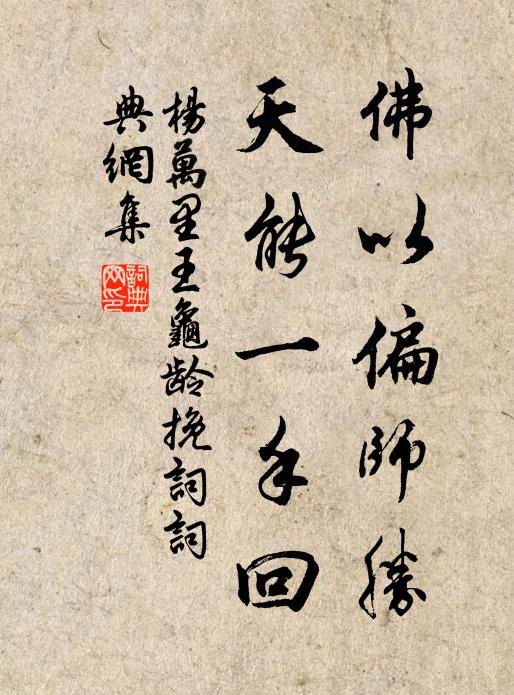 佛以偏師勝
天能一手回
楊萬里王龜齡挽詞詞
典網集
詞典網印